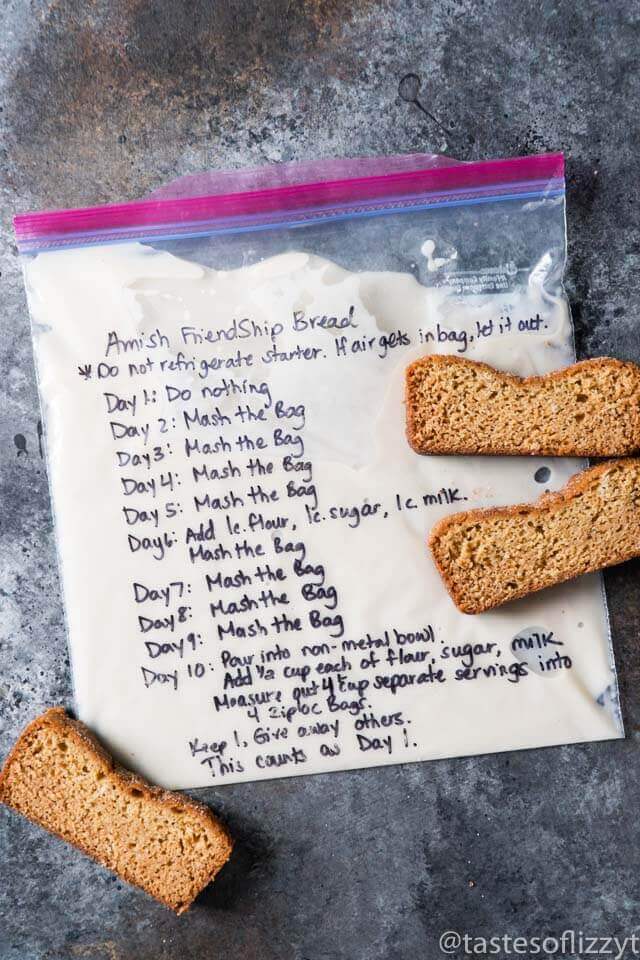 Amish FriendShip Bread
* Do not refrigerate starter. If air gets in bag, let it out.
Day 1: Do nothing
Day 2: Mash the Bag
Day 3: Mash the Bag
Day 4: Mash the Bag
Day 5: Mash the Bag
Day 6: Add 1c. flour, 1c. sugar, 1c milk.
Mash the Bag
Day 7: Mash the Bag
Day 8: Mash the Bag
Day 9: Mash the Bag
Day 10: Pour into non-metal bowl.
Add 1/2 cup each of flour, sugar, milk
Measure out 4 cup separate servings into
4 ziploc Bags.
Keep 1, Give away others.
This counts as Day 1.
@tastesoflizzyt